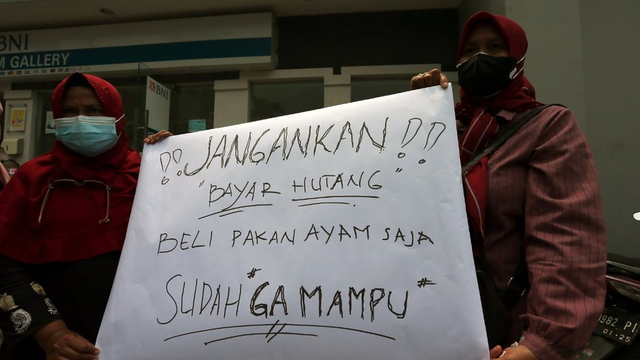 BNI
M GALLERY
BNI
!! JANGANKAN !!
"BAYAR HUTANG"
BELI PAKAN AYAM SAJA
SUDAH "GA MAMPU"
982 P
01·25